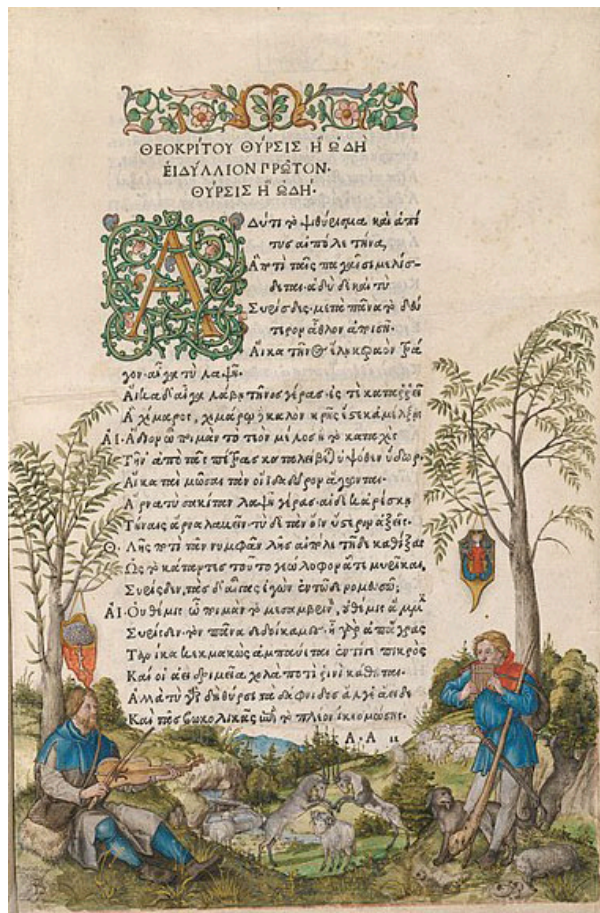 ΘΕΟΚΡΙΤΟΥ ΘΥΡΣΙΣ Ἢ ᾨΔΗ
ΕΙΔΥΛΛΙΟΝ ΠΡΩΤΟΝ.
ΘΥΡΣΙΣ Ἢ ᾨΔΗ.
Α Δύ τι τὸ ψιθύρισμα καὶ ἁ πί
τυς αἰπόλε τήνα,
Ἃ ποτὶ ταῖς παγαῖσι μελίσ-
δεται. ἁδὺ δὲ καὶ τὺ
Συρίσδες. μετὰ πᾶνα τὸ δεύ
τερον ἆθλον ἀποισῇ.
Αἴκα τῆνος ἕλῃ κεραὸν τρά
γον. αἶγα τὺ λαψῇ.
Αἴκα δ' αἶγα λάβῃ τῆνος γέρας. ἐς τὲ καταρρεῖ
Ἁ χίμαρος. χιμάρω δὲ καλὸν κρῆς ἔς τε κ' ἀμέλξῃς
ΑΙ. Ἅδιον ὦ ποιμὰν τὸ τεὸν μέλος ἢ τὸ καταχὲς
Τῆν' ἀπὸ τᾶς πέτρας καταλείβεται ὑψόθεν ὕδωρ.
Αἴκα ταὶ μῶσαι τὰν οἴϊδα δῶρον ἄγωνται.
Ἄρνα τὺ σακίταν λαψῇ γέρας. αἰ δέ κ' ἀρέσκῃ
Τήναις ἄρνα λαβεῖν. τὺ δὲ τὰν ὄϊν ὕστερον ἀξεῖς.
Θ. Λῇς ποτὶ τᾶν νυμφᾶν λῇς αἰπόλε τῇδε καθίξας
Ὡς τὸ κάταντες τοῦτο γεώλοφον ᾇτε μυρῖκαι,
Συρίσδεν, τὰς δ' αἶγας ἐγὼν ἐν τῷδε νομευσῶ;
ΑΙ. Οὐ θέμις ὦ ποιμὰν τὸ μεσαμβρινόν, οὐ θέμις ἄμμιν
Συρίσδεν. τὸν πᾶνα δεδοίκαμες. ἦ γὰρ ἀπ' ἄγρας
Τανίκα κεκμακὼς ἀμπαύεται ἐντί γε πικρὸς
Καί οἱ ἀεὶ δριμεῖα χολὰ ποτὶ ῥινὶ κάθηται.
Ἀλλὰ τὺ γὰρ δὴ θύρσι τὰ δάφνιδος ἄλγε' ἄειδες
Καὶ τᾶς βωκολικᾶς ἐπὶ τὸ πλέον ἵκεο μώσας.
Α.Α ii